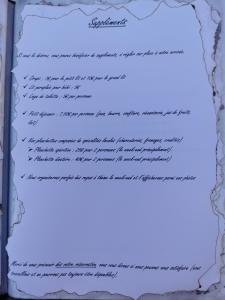 Suppléments
Si vous le désirez, vous pouvez bénéficier de suppléments, à régler sur place à votre arrivée.
✓ Draps : 5€ pour le petit lit et 10€ pour le grand lit
✓ Lit parapluie pour bébé : 5€
✓ Linge de toilette : 5€ par personne
✓ Petit déjeuner : 7,50€ par personne (pain, beurre, confiture, viennoiserie, jus de fruits,
✓ Nos planchettes composées de spécialités locales (charcuteries, fromages, crudités)
➤ Planchette apéritive : 25€ pour 2 personnes (le week-end principalement)
➤ Planchette 40€ pour 2 personnes (le week-end principalement)
✓ Nous organiserons parfois des repas à thème le week-end et l'afficherons
Merci de nous prévenir dès votre réservation, nous vous dirons si nous pouvons vous satisfaire (nous
travaillons et ne pourrons pas toujours être disponibles).